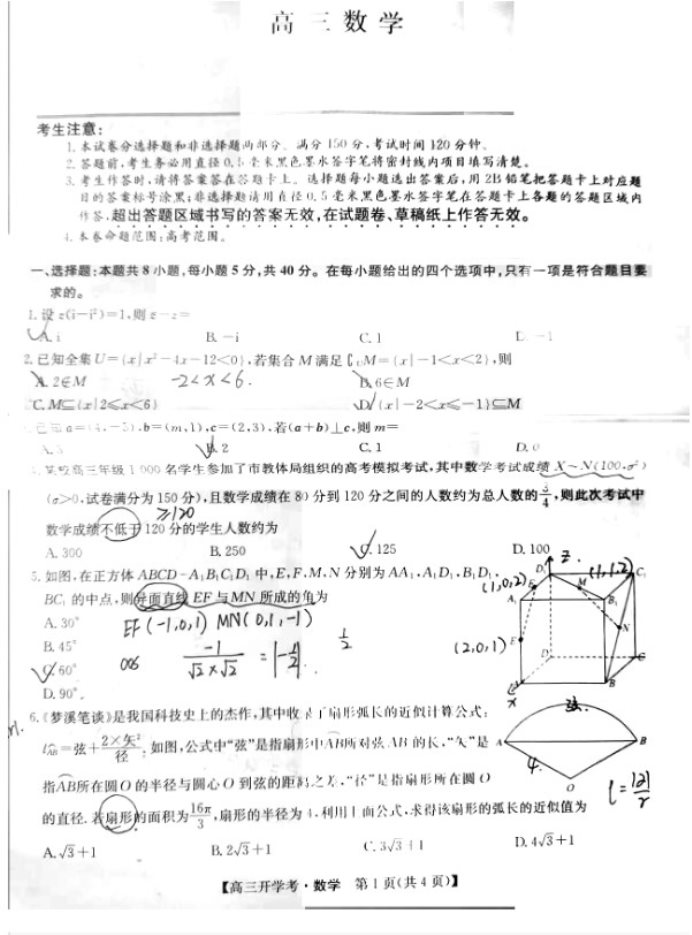 高三数学
考生注意：
1. 本试卷分选择题和非选择题两部分。满分 150 分，考试时间 120 分钟。
2. 答题前，考生务必用直径 0.5 毫米黑色墨水签字笔将密封线内项目填写清楚。
3. 考生作答时，请将答案答在答题卡上。选择题每小题选出答案后，用 2B 铅笔把答题卡上对应题
目的答案标号涂黑；非选择题请用直径 0.5 毫米黑色墨水签字笔在答题卡上各题的答题区域内
作答，超出答题区域书写的答案无效，在试题卷、草稿纸上作答无效。
4. 本卷命题范围：高考范围。
一、选择题：本题共 8 小题，每小题 5 分，共 40 分。在每小题给出的四个选项中，只有一项是符合题目要
求的。
1. 设 z(i-i²)=1，则 z-z=
A. i B. -i C. 1 D. -1
2. 已知全集 U={x|x²-4x-12<0}，若集合 M 满足∁UM={x|-1<x<2}，则
A. 2∈M -2<x<6. B. 6∈M
C. M⊆{x|2≤x<6} D. {x|-2<x≤-1}⊆M
已知 a=(4,-5),b=(m,1),c=(2,3),若(a+b)⊥c,则 m=
A. 3 B. 2 C. 1 D. 0
4. 某校高三年级 1 000 名学生参加了市教体局组织的高考模拟考试，其中数学考试成绩 X~N(100,σ²)
(σ>0，试卷满分为 150 分)，且数学成绩在 80 分到 120 分之间的人数约为总人数的3/4，则此次考试中
≥120
数学成绩不低于 120 分的学生人数约为
A. 300 B. 250 C. 125 D. 100
5. 如图，在正方体 ABCD-A₁B₁C₁D₁ 中，E,F,M,N 分别为 AA₁,A₁D₁,B₁D₁,
BC₁ 的中点，则异面直线 EF 与 MN 所成的角为
A. 30° EF(-1,0,1) MN(0,1,-1)
B. 45° 1/2
C. 60° cos -1/(√2×√2) =|-1/2|
D. 90°.
z.
D₁ (1,1,2) C₁
(1,0,2) F M
A₁ B₁
N
(2,0,1) E
D C
A B
x
6.《梦溪笔谈》是我国科技史上的杰作，其中收录了扇形弧长的近似计算公式：
lAB=弦+2×矢²/径；如图，公式中“弦”是指扇形中AB所对弦 AB 的长，“矢”是
指AB所在圆 O 的半径与圆心 O 到弦的距离之差，“径”是指扇形所在圆 O
的直径. 若扇形的面积为16π/3，扇形的半径为 4，利用上面公式，求得该扇形的弧长的近似值为
弦.
A B
4.
O
A. √3+1 B. 2√3+1 C. 3√3+1 D. 4√3+1
【高三开学考·数学 第 1 页(共 4 页)】